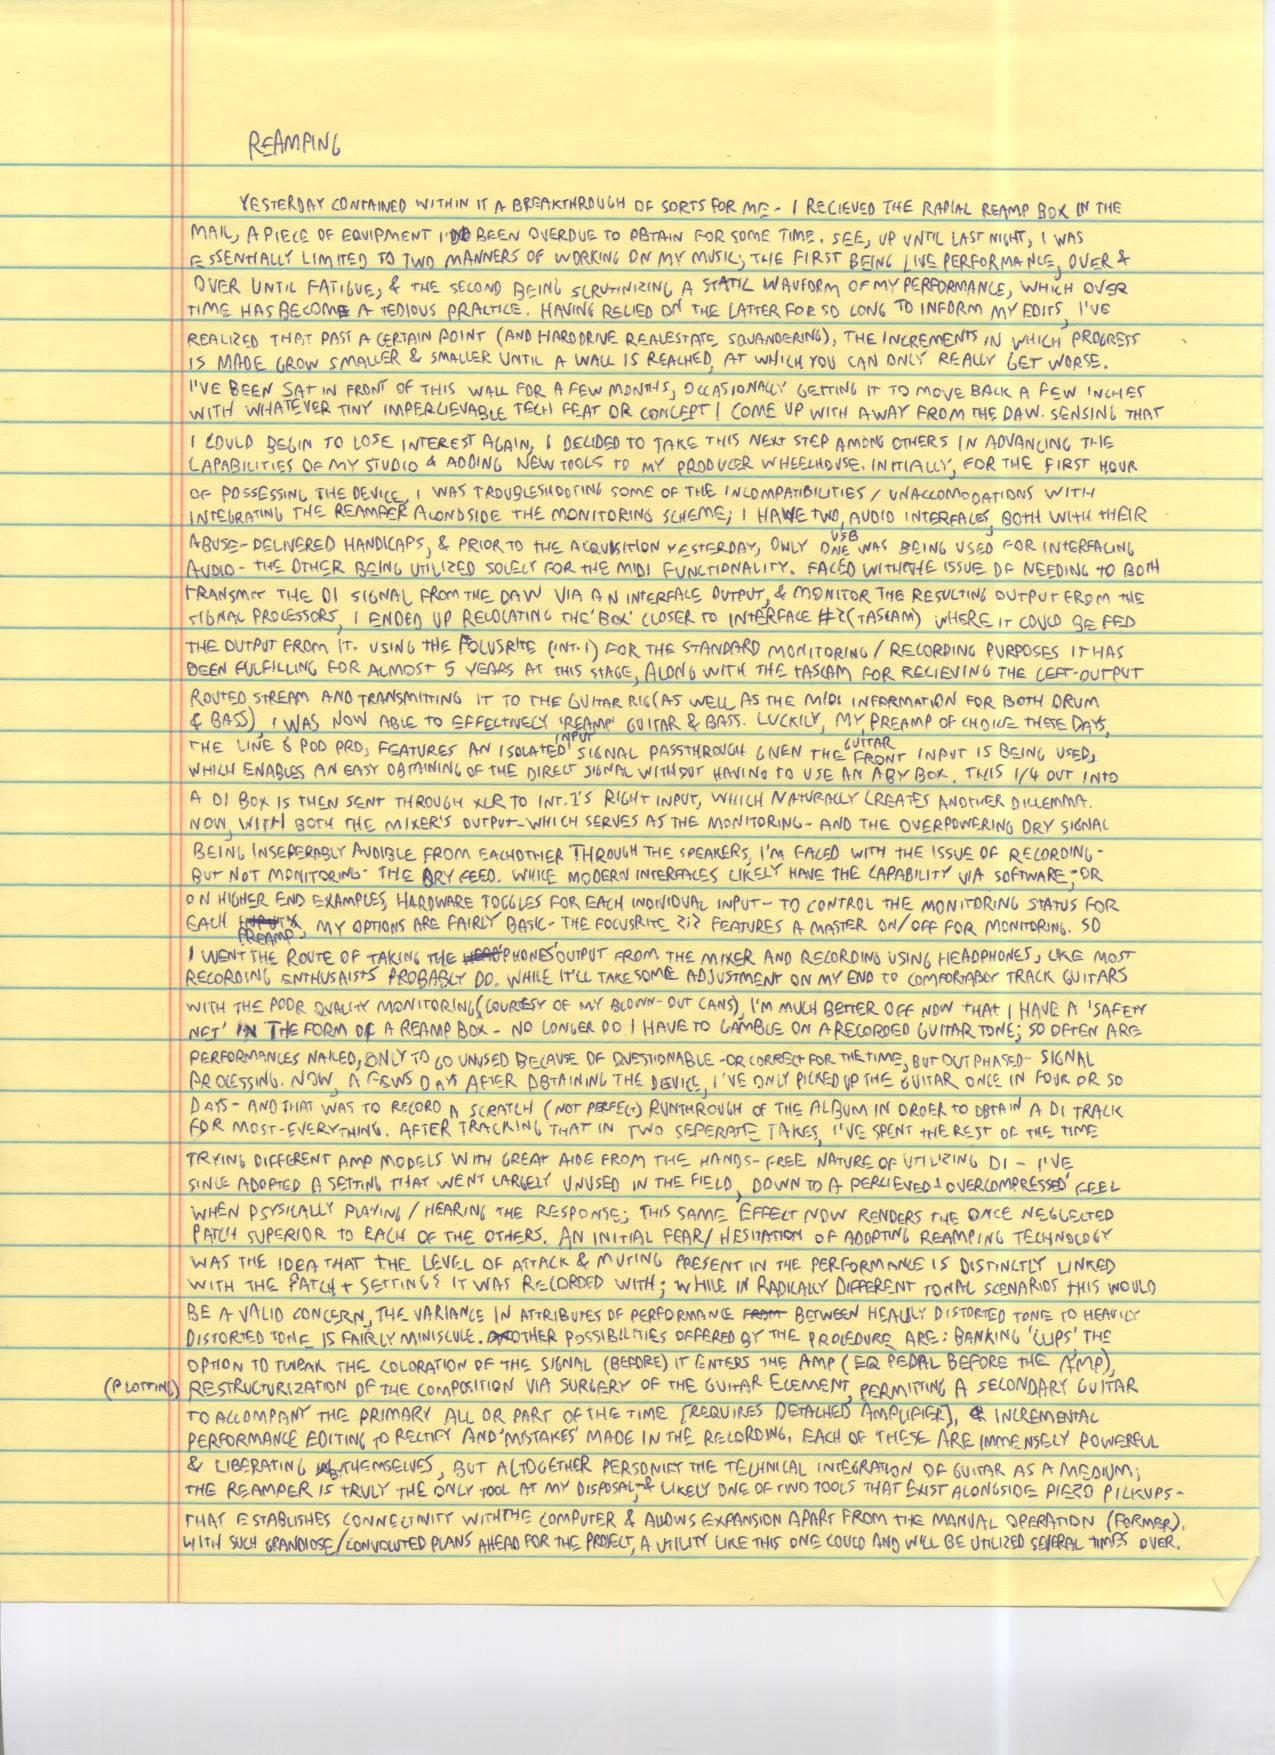 REAMPING
YESTERDAY CONTAINED WITHIN IT A BREAKTHROUGH OF SORTS FOR ME - I RECIEVED THE RADIAL REAMP BOX IN THE
MAIL, A PIECE OF EQUIPMENT I'D BEEN OVERDUE TO OBTAIN FOR SOME TIME. SEE, UP UNTIL LAST NIGHT, I WAS
ESSENTIALLY LIMITED TO TWO MANNERS OF WORKING ON MY MUSIC; THE FIRST BEING LIVE PERFORMANCE, OVER &
OVER UNTIL FATIGUE, & THE SECOND BEING SCRUTINIZING A STATIC WAVFORM OF MY PERFORMANCE, WHICH OVER
TIME HAS BECOME A TEDIOUS PRACTICE. HAVING RELIED ON THE LATTER FOR SO LONG TO INFORM MY EDITS, I'VE
REALIZED THAT PAST A CERTAIN POINT (AND HARDDRIVE REALESTATE SQUANDERING), THE INCREMENTS IN WHICH PROGRESS
IS MADE GROW SMALLER & SMALLER UNTIL A WALL IS REACHED, AT WHICH YOU CAN ONLY REALLY GET WORSE.
I'VE BEEN SAT IN FRONT OF THIS WALL FOR A FEW MONTHS, OCCASIONALLY GETTING IT TO MOVE BACK A FEW INCHES
WITH WHATEVER TINY IMPERCIEVABLE TECH FEAT OR CONCEPT I COME UP WITH AWAY FROM THE DAW. SENSING THAT
I COULD BEGIN TO LOSE INTEREST AGAIN, I DECIDED TO TAKE THIS NEXT STEP AMONG OTHERS IN ADVANCING THE
CAPABILITIES OF MY STUDIO & ADDING NEW TOOLS TO MY PRODUCER WHEELHOUSE. INITIALLY, FOR THE FIRST HOUR
OF POSSESSING THE DEVICE, I WAS TROUBLESHOOTING SOME OF THE INCOMPATIBILITIES / UNACCOMODATIONS WITH
INTEGRATING THE REAMPER ALONDSIDE THE MONITORING SCHEME; I HAVE TWO AUDIO INTERFACES, BOTH WITH THEIR
ABUSE-DELIVERED HANDICAPS, & PRIOR TO THE ACQUISITION YESTERDAY, ONLY ONE USB WAS BEING USED FOR INTERFACING
AUDIO - THE OTHER BEING UTILIZED SOLELY FOR THE MIDI FUNCTIONALITY. FACED WITH THE ISSUE OF NEEDING TO BOTH
TRANSMIT THE DI SIGNAL FROM THE DAW VIA AN INTERFACE OUTPUT, & MONITOR THE RESULTING OUTPUT FROM THE
SIGNAL PROCESSORS, I ENDED UP RELOCATING THE 'BOX' CLOSER TO INTERFACE #2 (TASCAM) WHERE IT COULD BE FED
THE OUTPUT FROM IT. USING THE FOCUSRITE (INT. 1) FOR THE STANDARD MONITORING / RECORDING PURPOSES IT HAS
BEEN FULFILLING FOR ALMOST 5 YEARS AT THIS STAGE, ALONG WITH THE TASCAM FOR RECIEVING THE LEFT-OUTPUT
ROUTED STREAM AND TRANSMITTING IT TO THE GUITAR RIG (AS WELL AS THE MIDI INFORMATION FOR BOTH DRUM
& BASS), I WAS NOW ABLE TO EFFECTIVELY 'REAMP' GUITAR & BASS. LUCKILY, MY PREAMP OF CHOICE THESE DAYS,
THE LINE 6 POD PRO, FEATURES AN ISOLATED INPUT SIGNAL PASSTHROUGH GIVEN THE GUITAR FRONT INPUT IS BEING USED,
WHICH ENABLES AN EASY OBTAINING OF THE DIRECT SIGNAL WITHOUT HAVING TO USE AN ABY BOX. THIS 1/4 OUT INTO
A DI BOX IS THEN SENT THROUGH XLR TO INT. 1'S RIGHT INPUT, WHICH NATURALLY CREATES ANOTHER DILLEMMA.
NOW, WITH BOTH THE MIXER'S OUTPUT - WHICH SERVES AS THE MONITORING - AND THE OVERPOWERING DRY SIGNAL
BEING INSEPERABLY AUDIBLE FROM EACHOTHER THROUGH THE SPEAKERS, I'M FACED WITH THE ISSUE OF RECORDING -
BUT NOT MONITORING - THE DRY FEED. WHILE MODERN INTERFACES LIKELY HAVE THE CAPABILITY VIA SOFTWARE, - OR
ON HIGHER END EXAMPLES, HARDWARE TOGGLES FOR EACH INDIVIDUAL INPUT - TO CONTROL THE MONITORING STATUS FOR
EACH PREAMP, MY OPTIONS ARE FAIRLY BASIC - THE FOCUSRITE 2i2 FEATURES A MASTER ON/OFF FOR MONITORING. SO
I WENT THE ROUTE OF TAKING THE 'PHONES' OUTPUT FROM THE MIXER AND RECORDING USING HEADPHONES, LIKE MOST
RECORDING ENTHUSAISTS PROBABLY DO. WHILE IT'LL TAKE SOME ADJUSTMENT ON MY END TO COMFORTABLY TRACK GUITARS
WITH THE POOR QUALITY MONITORING (COURTESY OF MY BLOWN-OUT CANS), I'M MUCH BETTER OFF NOW THAT I HAVE A 'SAFETY
NET' IN THE FORM OF A REAMP BOX - NO LONGER DO I HAVE TO GAMBLE ON A RECORDED GUITAR TONE; SO OFTEN ARE
PERFORMANCES NAILED, ONLY TO GO UNUSED BECAUSE OF QUESTIONABLE - OR CORRECT FOR THE TIME, BUT OUTPHASED - SIGNAL
PROCESSING. NOW, A FEWS DAYS AFTER OBTAINING THE DEVICE, I'VE ONLY PICKED UP THE GUITAR ONCE IN FOUR OR SO
DAYS - AND THAT WAS TO RECORD A SCRATCH (NOT PERFECT) RUNTHROUGH OF THE ALBUM IN ORDER TO OBTAIN A DI TRACK
FOR MOST-EVERYTHING. AFTER TRACKING THAT IN TWO SEPERATE TAKES, I'VE SPENT THE REST OF THE TIME
TRYING DIFFERENT AMP MODELS WITH GREAT AIDE FROM THE HANDS-FREE NATURE OF UTILIZING DI - I'VE
SINCE ADOPTED A SETTING THAT WENT LARGELY UNUSED IN THE FIELD, DOWN TO A PERCIEVED 'OVERCOMPRESSED' FEEL
WHEN PSYSICALLY PLAYING / HEARING THE RESPONSE; THIS SAME EFFECT NOW RENDERS THE ONCE NEGLECTED
PATCH SUPERIOR TO EACH OF THE OTHERS. AN INITIAL FEAR / HESITATION OF ADOPTING REAMPING TECHNOLOGY
WAS THE IDEA THAT THE LEVEL OF ATTACK & MUTING PRESENT IN THE PERFORMANCE IS DISTINCTLY LINKED
WITH THE PATCH + SETTINGS IT WAS RECORDED WITH; WHILE IN RADICALLY DIFFERENT TONAL SCENARIOS THIS WOULD
BE A VALID CONCERN, THE VARIANCE IN ATTRIBUTES OF PERFORMANCE BETWEEN HEAVILY DISTORTED TONE TO HEAVILY
DISTORTED TONE IS FAIRLY MINISCULE. OTHER POSSIBILITIES OFFERED BY THE PROCEDURE ARE: BANKING 'CLIPS' THE
OPTION TO TWEAK THE COLORATION OF THE SIGNAL (BEFORE) IT ENTERS THE AMP (EQ PEDAL BEFORE THE AMP),
(PLOTTING) RESTRUCTURIZATION OF THE COMPOSITION VIA SURGERY OF THE GUITAR ELEMENT, PERMITTING A SECONDARY GUITAR
TO ACCOMPANY THE PRIMARY ALL OR PART OF THE TIME [REQUIRES DETACHED AMPLIFIER], & INCREMENTAL
PERFORMANCE EDITING TO RECTIFY AND 'MISTAKES' MADE IN THE RECORDING. EACH OF THESE ARE IMMENSELY POWERFUL
& LIBERATING THEMSELVES, BUT ALTOGETHER PERSONIFY THE TECHNICAL INTEGRATION OF GUITAR AS A MEDIUM;
THE REAMPER IS TRULY THE ONLY TOOL AT MY DISPOSAL, - & LIKELY ONE OF TWO TOOLS THAT EXIST ALONGSIDE PIEZO PICKUPS -
THAT ESTABLISHES CONNECTIVITY WITH THE COMPUTER & ALLOWS EXPANSION APART FROM THE MANUAL OPERATION (FORMER).
WITH SUCH GRANDIOSE / CONVOLUTED PLANS AHEAD FOR THE PROJECT, A UTILITY LIKE THIS ONE COULD AND WILL BE UTILIZED SEVERAL TIMES OVER.